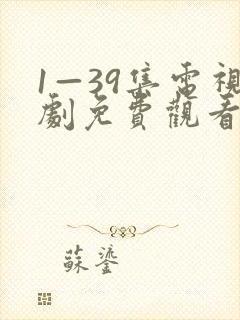 1—39集電視
劇免費觀看
蘇鎏